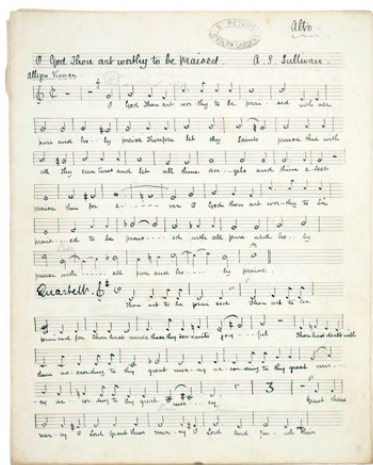 Alto.
ST PETER'S
O God Thou art worthy to be praised A. S. Sullivan.
Allegro Vivace
O God Thou art wor-thy to be prai - sed with all
pure and ho - ly praise Therefore let thy Saints praise thee with
all thy creatures and let all thine an - gels and thine elect
praise thee for e - - ver O God thou art wor-thy to be
prais - - ed to be prais - - ed with all pure and ho - ly
praise with - - all pure and ho - - ly praise.
Quartett.
Thou art to be prai sed Thou art to be
praised for Thou hast made thy servants joy - - ful Thou hast dealt with
them ac - cording to thy great mer - cy ac - cor - ding to thy great mer - -
cy ac - cor - ding to thy great mer - cy 3 Grant them
mer - cy O Lord Grant them mer - cy O Lord and their